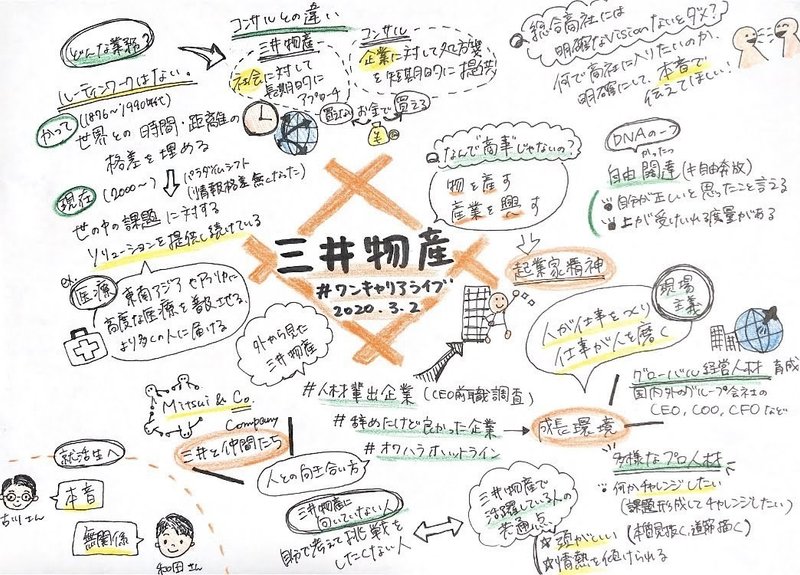 どんな業務?
ルーティンワークはない。
かつて
(1876〜1990年代)
世界との時間・距離の
格差を埋める
現在
(2000〜)
パラダイムシフト
(情報格差無くなった)
世の中の課題に対する
ソリューションを提供し続けている
ex.
医療
東南アジアやアフリカに
高度な医療を普及させる。
より多くの人に届ける
コンサルとの違い
三井物産
社会に対して
長期目的に
アプローチ
コンサル
企業に対して処方箋
を短期目的に提供
お金で
買える
総合商社には
明確なVisionないとダメ?
何で商社に入りたいのか、
明確にして、本音で
伝えてほしい!
なんで商事じゃないの?
物を産す
産業を興す
起業家精神
DNAの一つ
かたつ
自由闊達(≠自由奔放)
自分が正しいと思ったこと言える
上が受けいれる度量がある
三井物産
#ワンキャリアライブ
2020.3.2
現場
主義
人が仕事をつくり
仕事が人を磨く
グローバル経営人材 育成
国内外のグループ会社の
CEO, COO, CFOなど
外から見た
三井物産
#人材輩出企業(CEO前職調査)
#辞めたけど良かった企業
#オワハラオットライン
成長環境
Mitsui & Co.
Company
三井と仲間たち
人との向き合い方?
多様なプロ人材
何かチャレンジしたい
(課題形成してチャレンジしたい)
三井物産に
向いていない人
自分で考えて挑戦を
したくない人
三井物産で
活躍している人の
共通点
頭がいい(本質見抜く、道筋描く)
情熱を傾けられる
就活生へ
本音
古川さん
無関係
和田さん